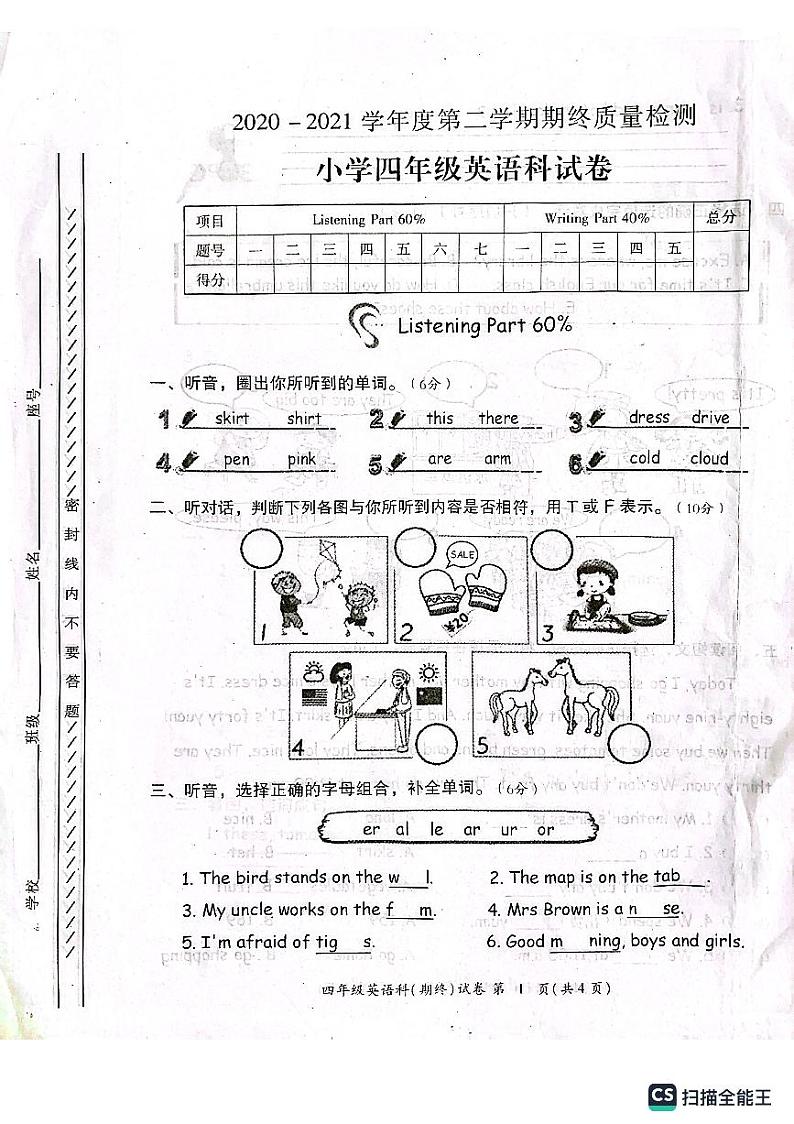 2020-2021学年度第二学期期终质量检测
小学四年级英语科试卷
项目 Listening Part 60% Writing Part 40% 总分
题号 一 二 三 四 五 六 七 一 二 三 四 五
得分
Listening Part 60%
一、听音，圈出你所听到的单词。(6分)
1 skirt shirt 2 this there 3 dress drive
4 pen pink 5 are arm 6 cold cloud
二、听对话，判断下列各图与你所听到内容是否相符，用 T 或 F 表示。(10分)
SALE
¥20
1 2 3
4 5
三、听音，选择正确的字母组合，补全单词。(6分)
er al le ar ur or
1. The bird stands on the w___l. 2. The map is on the tab___.
3. My uncle works on the f___m. 4. Mrs Brown is a n___se.
5. I'm afraid of tig___s. 6. Good m___ning, boys and girls.
四年级英语科(期终)试卷 第 1 页(共4页)
学校 班级 姓名 座号
密封线内不要答题
CS 扫描全能王